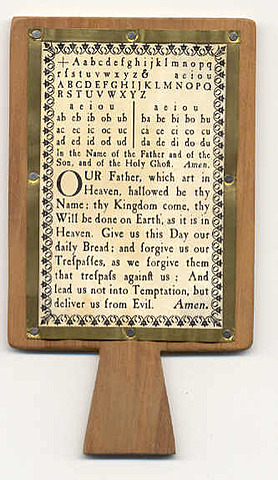 +Aabcdefghijklmnopq
rſstuvwxyz& aeiou
ABCDEFGHIJKLMNOPQ
RSTUVWXYZ
aeiou aeiou
ab eb ib ob ub ba be bi bo bu
ac ec ic oc uc ca ce ci co cu
ad ed id od ud da de di do du
in the Name of the Father and of the
Son, and of the Holy Ghoſt. Amen.
OUR Father, which art in
Heaven, hallowed be thy
Name; thy Kingdom come, thy
Will be done on Earth, as it is in
Heaven. Give us this Day our
daily Bread; and forgive us our
Treſpaſſes, as we forgive them
that treſpaſs againſt us: And
lead us not into Temptation, but
deliver us from Evil. Amen.